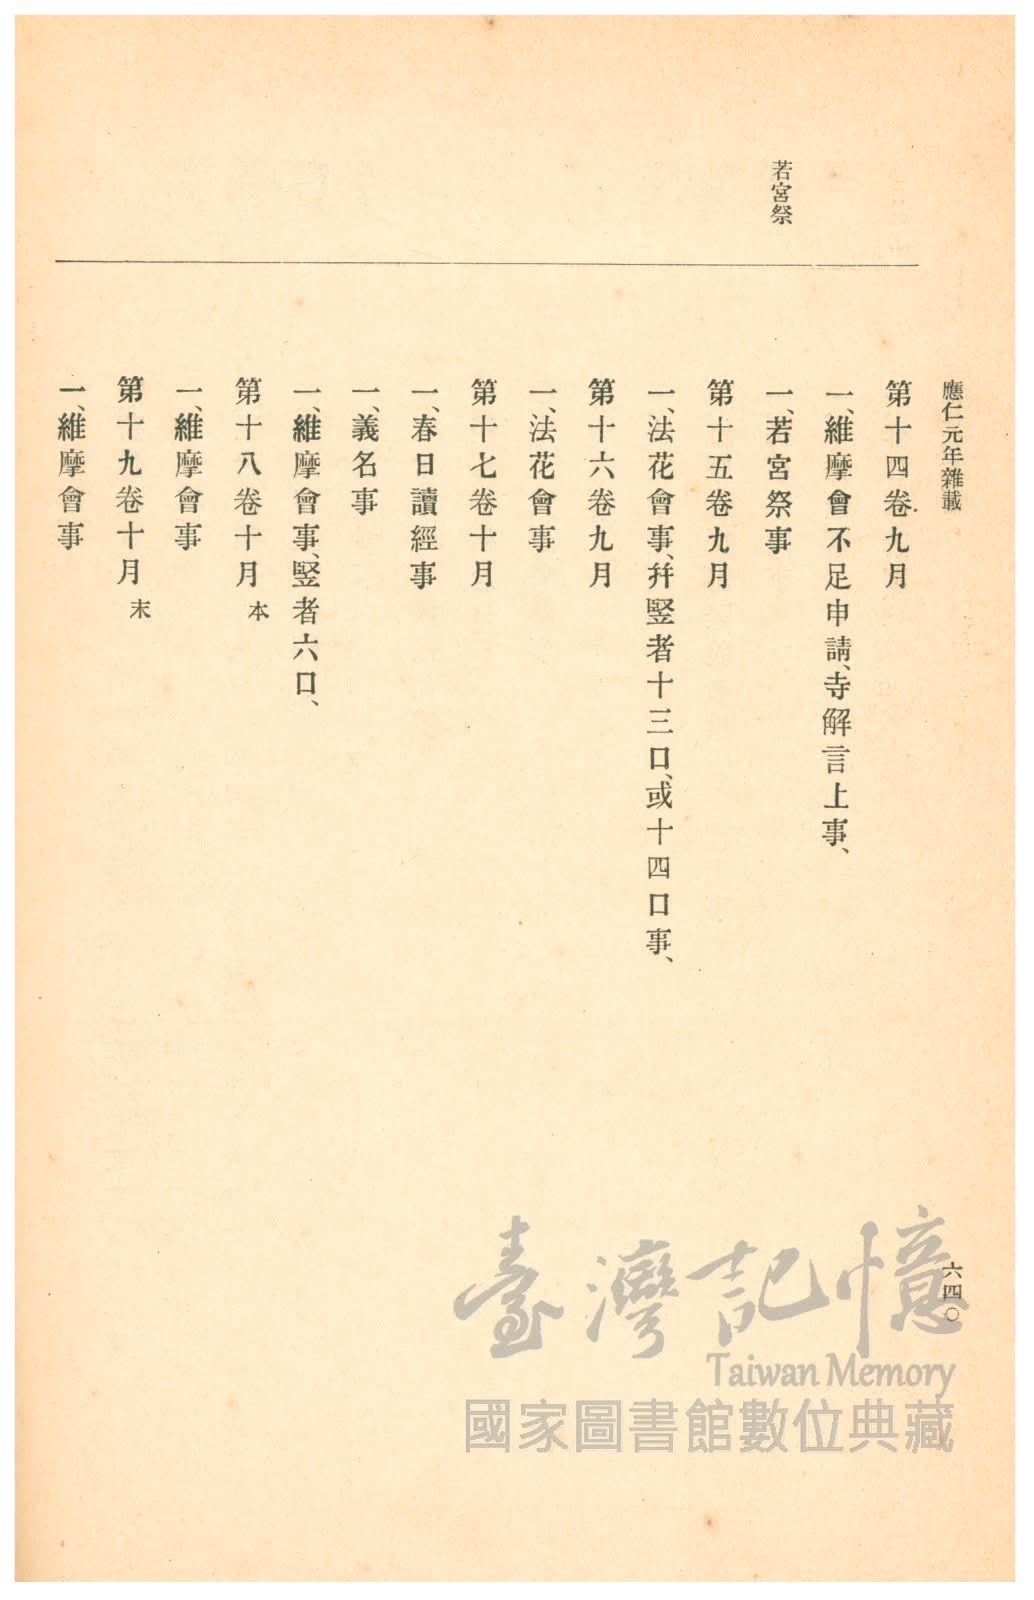 應仁元年雜載
六四〇
若宮祭
第十四卷九月
一、維摩會不足申請、寺解言上事、
一、若宮祭事
第十五卷九月
一、法花會事、幷竪者十三口、或十四口事、
第十六卷九月
一、法花會事
第十七卷十月
一、春日讀經事
一、義名事
一、維摩會事、竪者六口、
第十八卷十月本
一、維摩會事
第十九卷十月末
一、維摩會事
臺灣記憶
Taiwan Memory
國家圖書館數位典藏